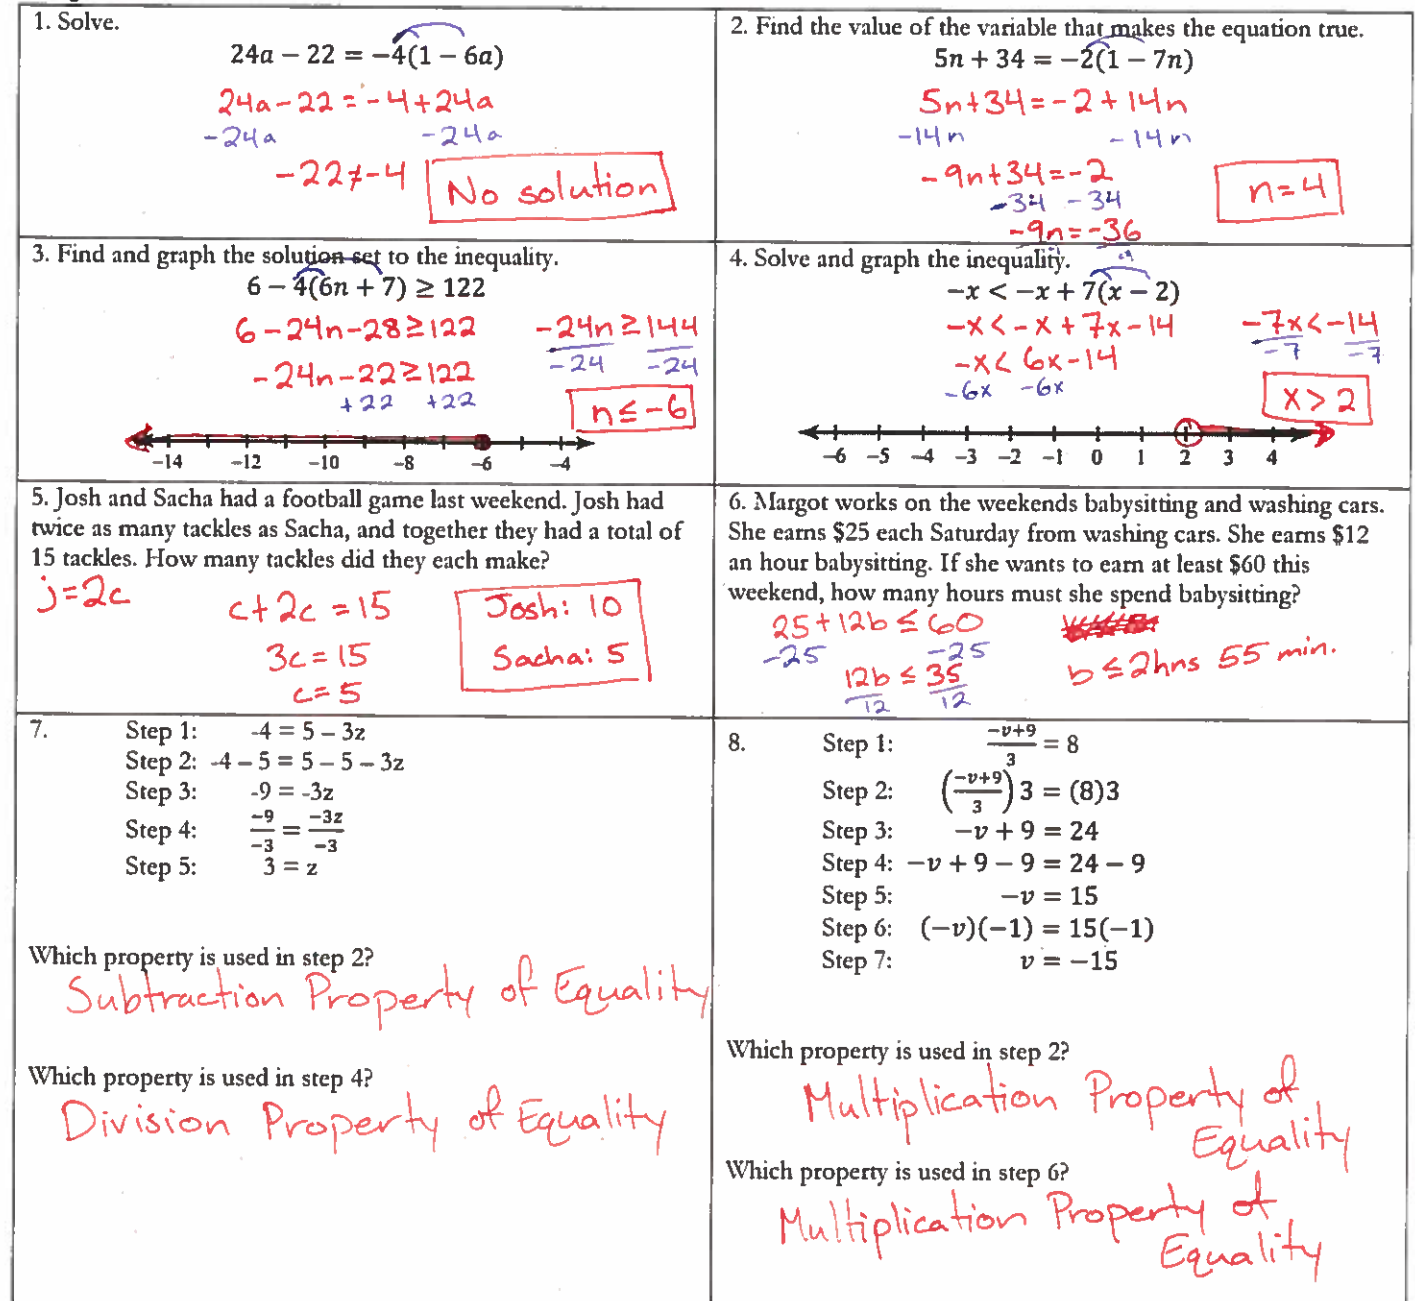 1. Solve.
24a − 22 = −4(1 − 6a)
24a-22=-4+24a
-24a -24a
-22≠-4 No solution
2. Find the value of the variable that makes the equation true.
5n + 34 = −2(1 − 7n)
5n+34=-2+14n
-14n -14n
-9n+34=-2
-34 -34
-9n=-36
n=4
3. Find and graph the solution set to the inequality.
6 − 4(6n + 7) ≥ 122
6-24n-28≥122
-24n-22≥122
+22 +22
-24n≥144
-24 -24
n≤-6
-14 -12 -10 -8 -6 -4
4. Solve and graph the inequality.
−x < −x + 7(x − 2)
-x<-x+7x-14
-x<6x-14
-6x -6x
-7x<-14
-7 -7
x>2
-6 -5 -4 -3 -2 -1 0 1 2 3 4
5. Josh and Sacha had a football game last weekend. Josh had
twice as many tackles as Sacha, and together they had a total of
15 tackles. How many tackles did they each make?
j=2c
c+2c=15
3c=15
c=5
Josh: 10
Sacha: 5
6. Margot works on the weekends babysitting and washing cars.
She earns $25 each Saturday from washing cars. She earns $12
an hour babysitting. If she wants to earn at least $60 this
weekend, how many hours must she spend babysitting?
25+12b≤60
-25 -25
12b≤35
12 12
b≤2hrs 55 min.
7. Step 1: -4 = 5 – 3z
Step 2: -4 – 5 = 5 – 5 – 3z
Step 3: -9 = -3z
Step 4: −9/−3 = −3z/−3
Step 5: 3 = z
Which property is used in step 2?
Subtraction Property of Equality
Which property is used in step 4?
Division Property of Equality
8. Step 1: −v+9/3 = 8
Step 2: (−v+9/3)3 = (8)3
Step 3: −v + 9 = 24
Step 4: −v + 9 − 9 = 24 − 9
Step 5: −v = 15
Step 6: (−v)(−1) = 15(−1)
Step 7: v = −15
Which property is used in step 2?
Multiplication Property of
Equality
Which property is used in step 6?
Multiplication Property of
Equality